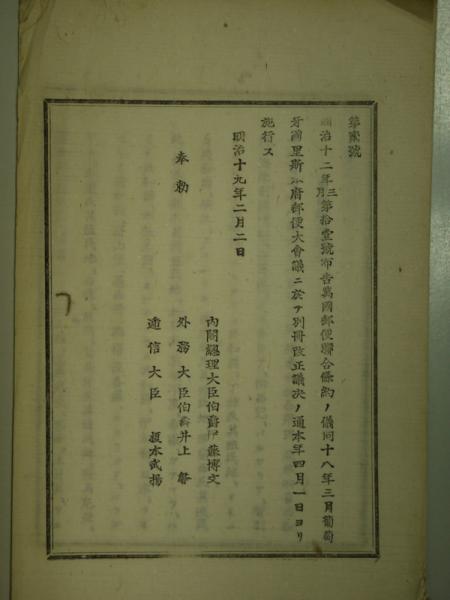 第壹號
明治十二年三月第拾壹號布告萬國郵便聯合條約ノ儀同十八年三月葡萄
牙國里斯本府郵便大會議ニ於テ別冊改正議決ノ通本年四月一日ヨリ
施行ス
明治十九年二月二日
奉勅
內閣總理大臣伯爵伊藤博文
外務大臣伯爵井上馨
遞信大臣 榎本武揚